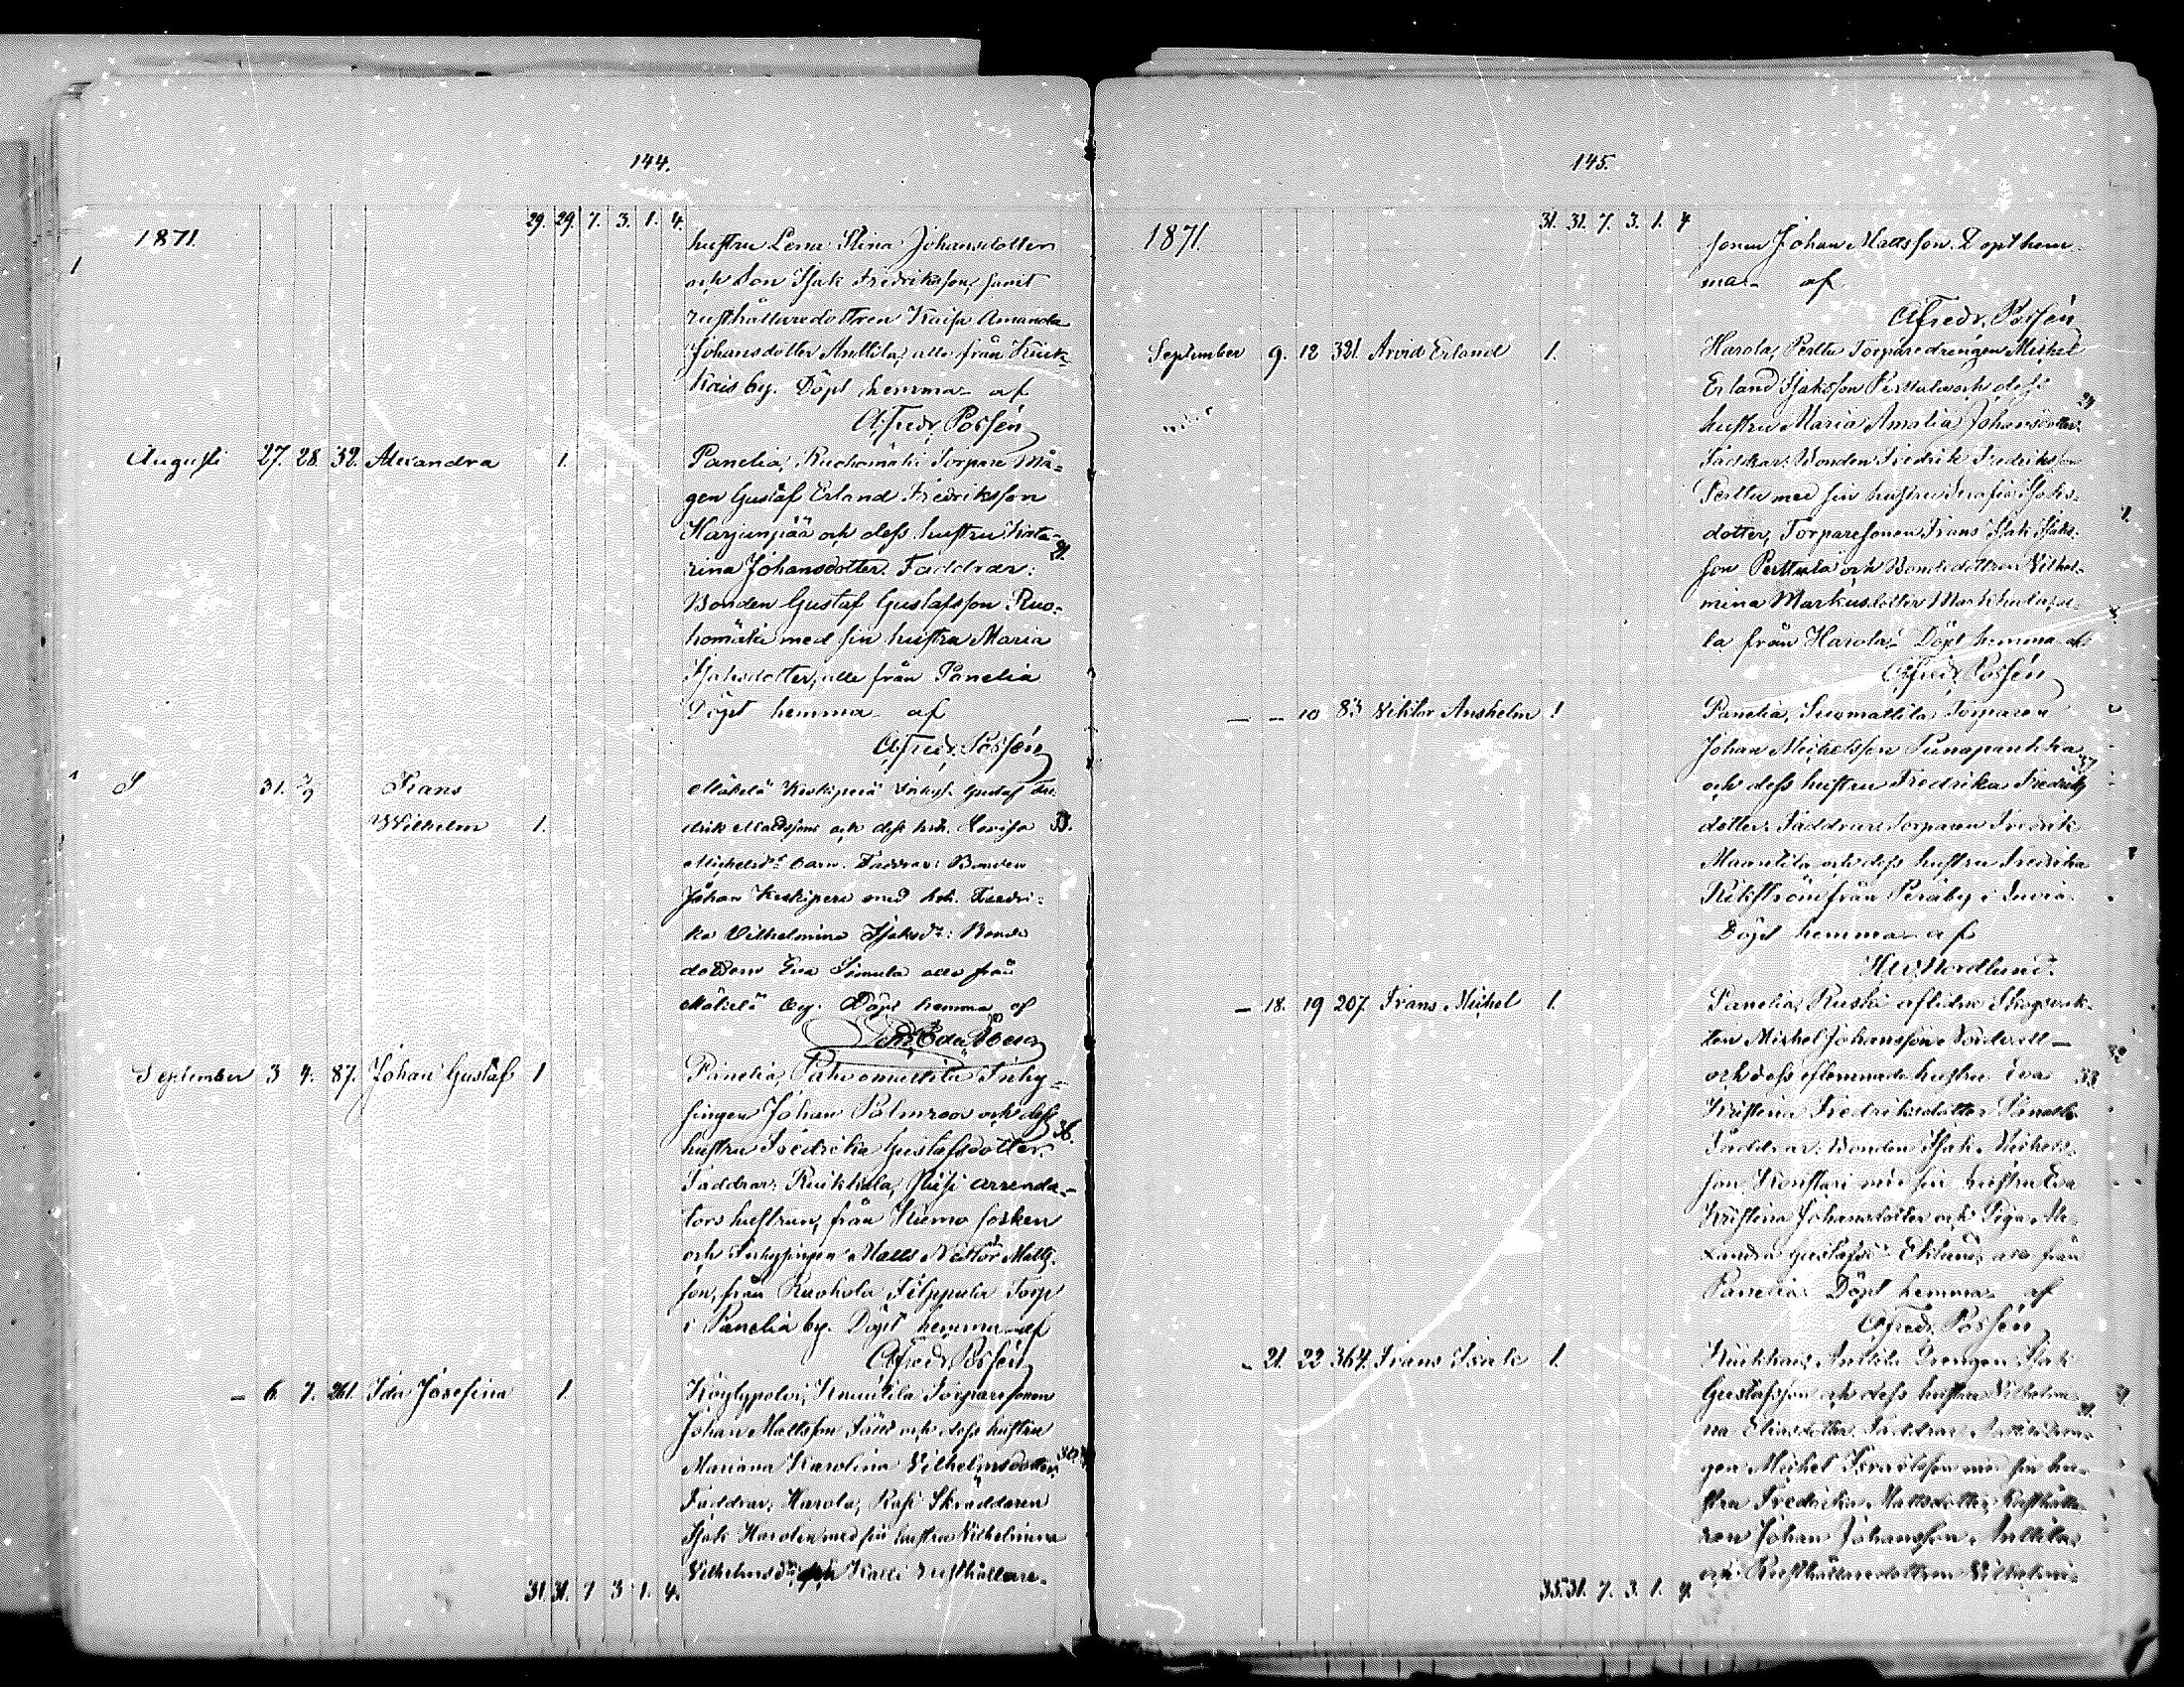 144.
29. 29. 7. 3. 1. 4.
1871.
hustru Lena Stina Johansdotter
och Son Isak Fredriksson, samt
rusthållaredottren Kaisa Amanda
Johansdotter Anttila, alla från Kiuk-
kais by. Döpt hemma af
Alfredr. Possén
Augusti 27. 28. 32. Alexandra 1. Panelia, Ruohomäki Torpare Må-
gen Gustaf Erland Fredriksson
Harjunpää och dess hustru Kata-
rina Johansdotter. Faddrar:
Bonden Gustaf Gustafsson Ruo-
homäki med sin hustru Maria
Isaksdotter, alla från Panelia
Döpt hemma af
Alfredr. Possén
31. 3/9 Frans Mäkelä Keskiperä Inhys. Gustaf Fre-
Wilhelm 1. drik Mattssons och dess hu. Lovisa 33.
Michelsdr barn. Faddrar: Bonden
Johan Keskiperä med hu. Fredri-
ka Vilhelmina Isaksdr: Bonde
dottren Eva Simula alla från
Mäkelä by. Döpt hemma af
September 3 4. 87. Johan Gustaf 1 Panelia, Inhy-
singen Johan Palmroos och dess
hustru Fredrika Gustafsdotter. 36.
Faddrar: arrenda-
tors hustrun, från Kiumo socken
och Inhysingen Matts Nestor Matts-
son, från Ruohola Filppula Torp
i Panelia by. Döpt hemma af
Alfredr. Possén
- 6. 7. 261. Ida Josefina 1. Köylypolvi, Knuutila Torparesonen
Johan Mattsson och dess hustru
Mariana Karolina Vilhelmsdotter. 30
Faddrar, Harola, Skräddaren
Isak Harolin med sin hustru Vilhelmina
Vilhelmsdr, och Kalli rusthållare-
31. 31. 7 3 1. 4.
145.
31. 31. 7. 3. 1. 4
1871.
sonen Johan Mattsson. Döpt hem-
ma- af
Alfredr. Possén
September 9. 12 321. Arvid Erland 1. Harola, Perttu Torparedrengen Michel
Erland Isaksson Perttula och dess
hustru Maria Amalia Johansdotter. 24
Faddrar: Bonden Fredrik Fredriksson
Perttu med sin hustru Serafia Isaks-
dotter, Torparesonen Frans Isak Isaks-
son Perttula och Bondedottren Vilhel-
mina Markusdotter al-
la från Harola. Döpt hemma af
Alfredr. Possén
- - 10 83 Viktor Anshelm 1 Panelia, Suomattila Torparen
Johan Michelsson
och dess hustru Fredrika Fredriks 37
dotter. Faddrar: Torparen Fredrik
och dess hustru Fredrika
från Peräby i Eura.
Döpt hemma af
Nordlund.
- 18. 19 207. Frans Michel 1. Panelia, Ruski aflidne Skogvak-
ten Michel Johansson Nordvall
och dess efterlemnade hustru Eva 33
Kristina Fredriksdotter
Faddrar: Bonden Isak Michels-
son med sin hustru Eva
Kristina Johansdotter och Piga Ale-
xandra Gustafsdr Eklund, alla från
Panelia. Döpt hemma af
Alfredr. Possén
- 21. 22 364. Frans Isak 1. Kiukkais, Anttila Drengen Isak
Gustafsson och dess hustru Vilhelmi-
na Eliasdotter. Faddrar:
gen Michel Israelsson med sin hu-
stru Fredrika Mattsdotter, Rusthålla-
ren Johan Johansson Anttila,
och Rusthållaredottren Vilhelmi-
35. 31. 7. 3. 1. 4.